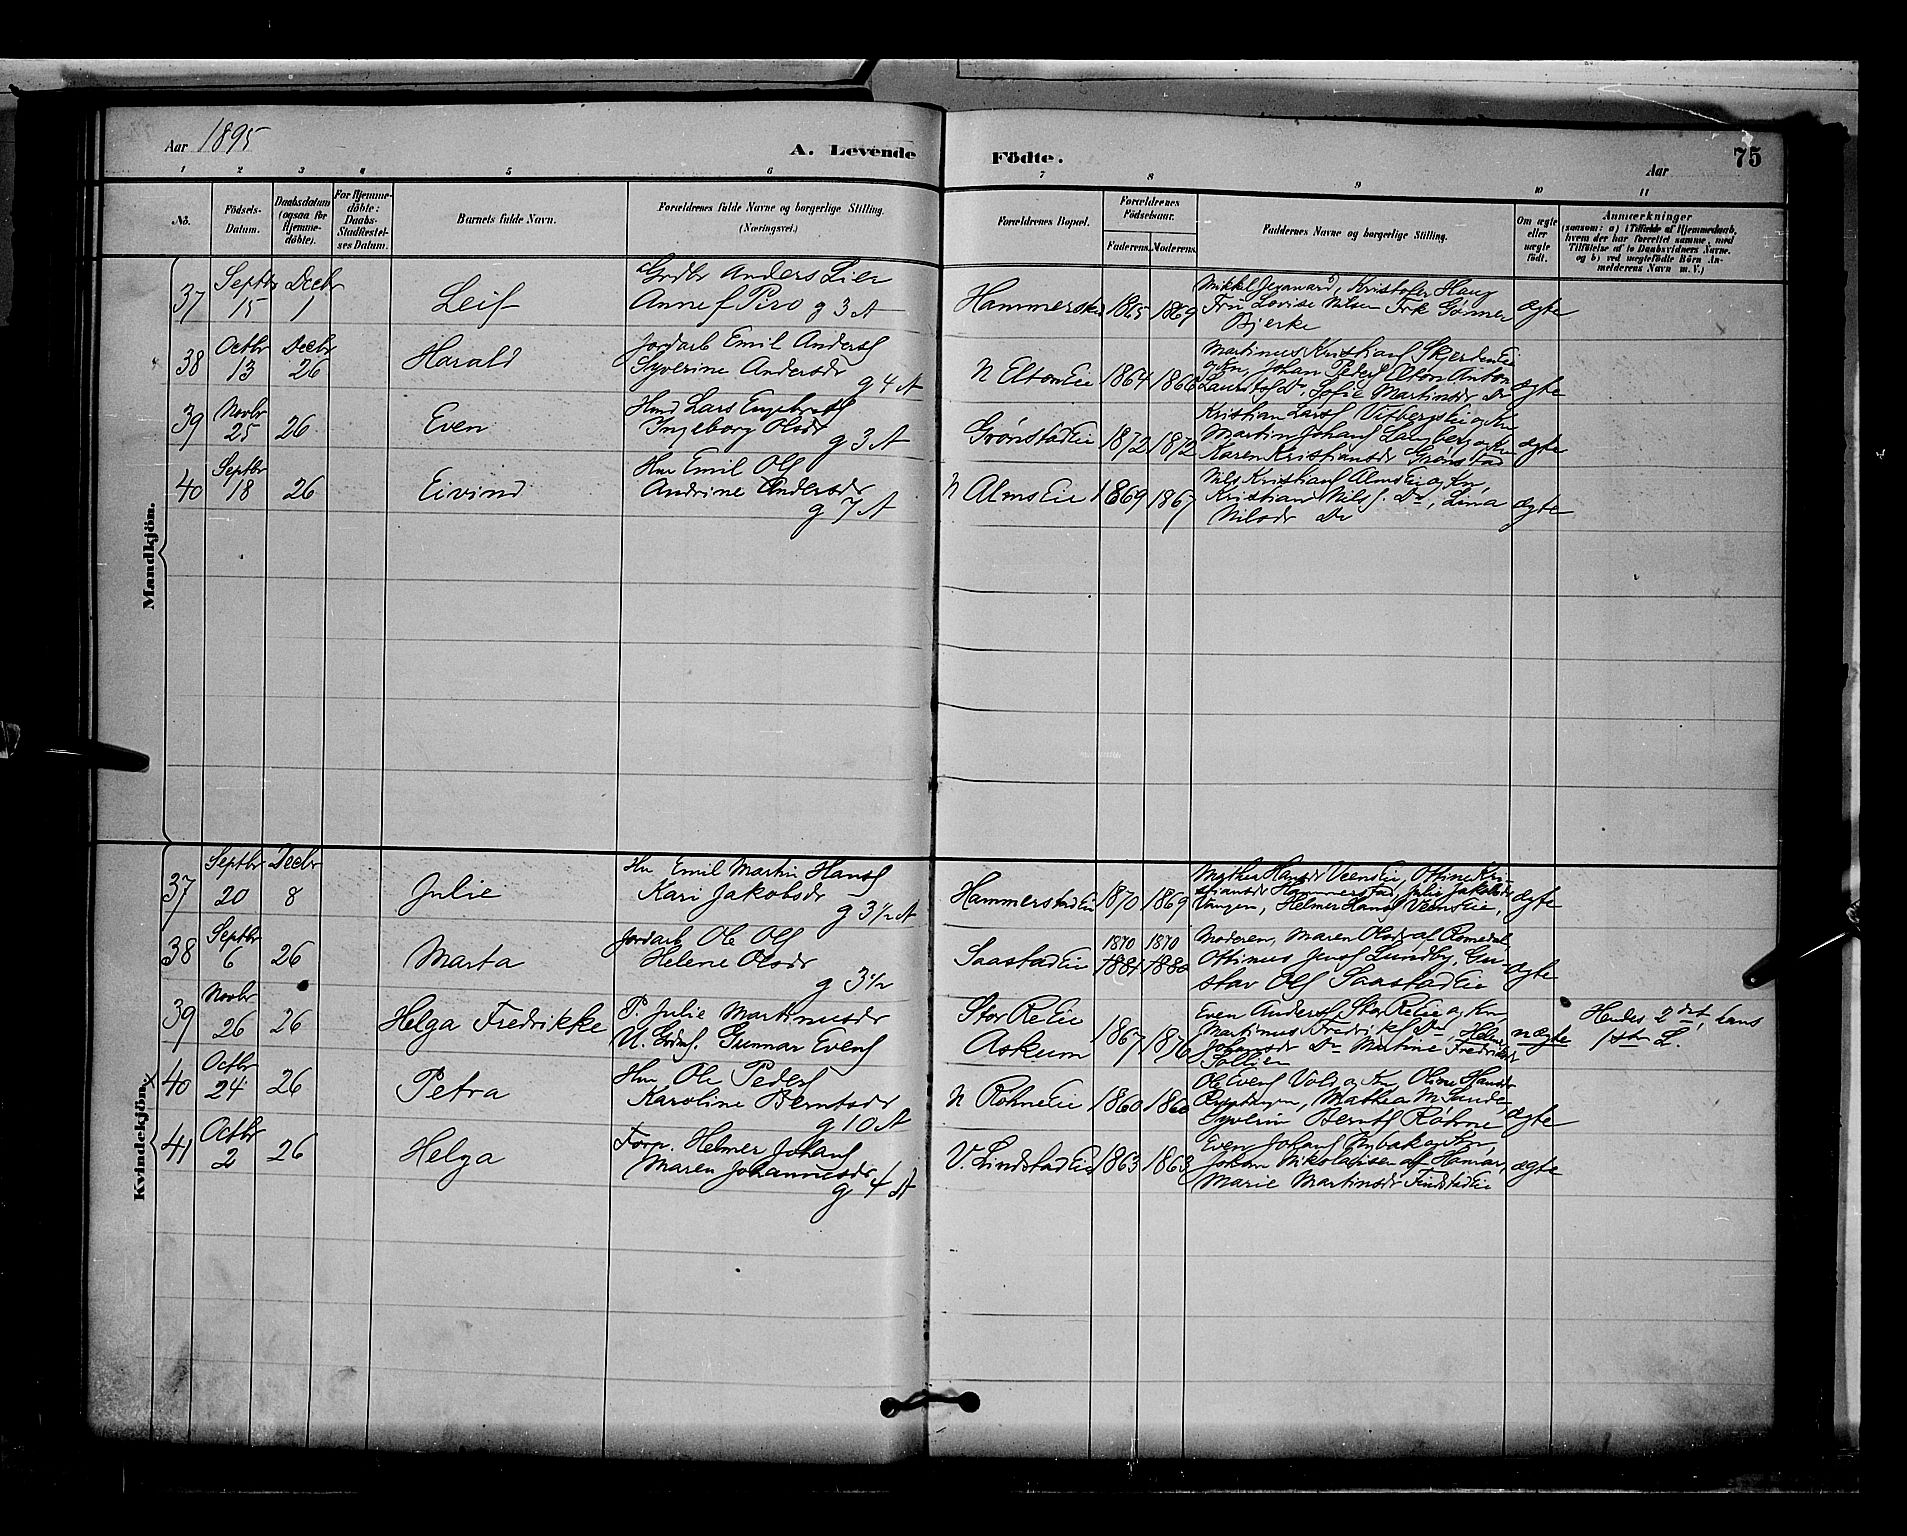 Aar 1895
A. Levende
Födte.
Aar
75
1 2 3 4 5 6 7 8 9 10 11
No.
Födsels-
Datum.
Daabsdatum
(ogsaa for
Hjemme-
döbte).
For Hjemme-
döbte:
Daabs-
Stadfæstel-
ses Datum.
Barnets fulde Navn.
Forældrenes fulde Navne og borgerlige Stilling.
(Næringsvei.)
Forældrenes Bopæl.
Forældrenes
Födselsaar.
Faderens. Moderens.
Faddernes Navne og borgerlige Stilling.
Om ægte
eller
uægte
födt.
Anmærkninger
(saasom: a) i Tilfælde af Hjemmedaab,
hvem der har forrettet samme, med
Tilföielse af to Daabsvidners Navne,
og b) ved uægtefödte Börn An-
melderens Navn m. V.)
Mandkjön.
37 Septbr 15 Decbr 1 Leif
Grdbr Anders Lier
Annef Piro g 3 A
Hammerstad 1865 1869
Mikkel , Kristofer Haug
Fru Lovise Nilsen Frk Gønner
Bjerke
ægte
38 Octbr 13 Decbr 26 Harald
Jordarb Emil Andersf
Syverine Andersdr
g 4 A
N Elton Eie 1864 1866
Martinus Kristiansf Skjerden Ei
og Kn, Johan Pedersf Elton Anton
Lauritsf Do, Sofie Martinsdr Do
ægte
39 Novbr 25 26 Even
Hmd Lars Engebretsf
Ingeborg Olsdr
g 3 A
Grønstad Eie 1872 1872
Kristian Larsf Vitbergs Eie og Kn
Martin Johansf Langberg og Kn
Karen Kristiansdr Grønstad
ægte
40 Septbr 18 26 Eivind
Hm Emil Olsf
Andrine Andersdr
g 7 A
N Alms Eie 1869 1867
Nils Kristiansf Alms Eie og Kn,
Kristian Nilsf Do, Lina
Nilsdr Do
ægte
Kvindekjön.
37 Septbr 20 Decbr 8 Julie
Hm Emil Martin Hansf
Kari Jakobsdr
g 3 1/2 A
Hammerstad Eie 1870 1869
Mathea Hansdr Veens Eie, Ottine Kri-
stiansdr Hammerstad, Julie Jakobsdr
Vangen, Helmer Hansf Veens Eie,
ægte
38 Septbr 6 26 Marta
Jordarb Ole Olsf
Helene Olsdr
g 3 1/2
Saastad Eie 1870 1870
1881 1880
Moderen, Maren Olsdr af Romedal
Ottinus Jensf Lundby, Gu-
stav Olsf Saastad Eie
ægte
39 Novbr 26 26 Helga Fredrikke
P. Julie Martinusdr
U. Grdms. Gunnar Evensf
Stor Re Eie
Askum
1867 1876
Even Andersf Stor Re Eie og Kn
Martinus Fredriksf Do, Helene
Johansdr Do Martine Fredriksdr
Sollien
uægte
Hendes 2det, hans
1ste L.
40 Octbr 24 26 Petra
Hm Ole Pedersf
Karoline Berntsdr
g 10 A
N Røhne Eie 1860 1860
Ole Evensf Vold og Kn, Oline Hansdr
, Mathea M. Sande,
Syverin Berntsf Røhne
ægte
41 Octbr 2 26 Helga
Forp. Helmer Johansf
Maren Johannesdr
g 4 A
V. Lindstad Eie 1863 1863
Even Johansf Nybak og Kn,
Johan Nikolaisen af Hamar,
Marie Martinsdr Findstad Eie
ægte